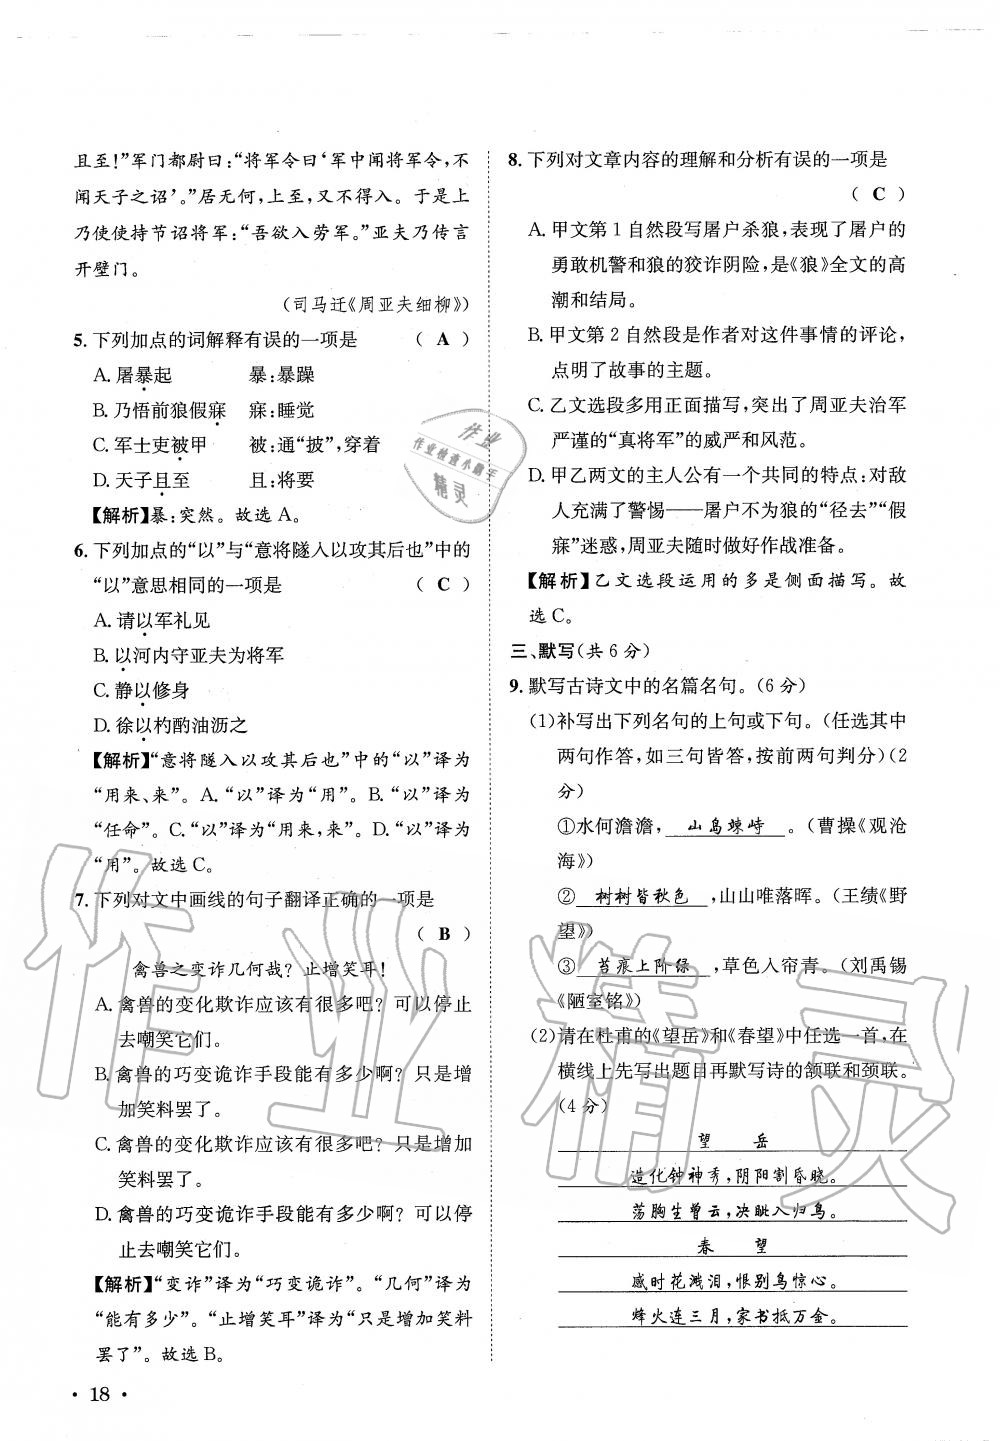 且至!”军门都尉曰:“将军令曰‘军中闻将军令,不
闻天子之诏’。”居无何,上至,又不得入。于是上
乃使使持节诏将军:“吾欲入劳军。”亚夫乃传言
开壁门。
(司马迁《周亚夫细柳》)
5. 下列加点的词解释有误的一项是 ( A )
A. 屠暴起 暴:暴躁
B. 乃悟前狼假寐 寐:睡觉
C. 军士吏被甲 被:通“披”,穿着
D. 天子且至 且:将要
【解析】暴:突然。故选A。
6. 下列加点的“以”与“意将隧入以攻其后也”中的
“以”意思相同的一项是 ( C )
A. 请以军礼见
B. 以河内守亚夫为将军
C. 静以修身
D. 徐以杓酌油沥之
【解析】“意将隧入以攻其后也”中的“以”译为
“用来、来”。A.“以”译为“用”。B.“以”译为
“任命”。C.“以”译为“用来,来”。D.“以”译为
“用”。故选C。
7. 下列对文中画线的句子翻译正确的一项是
( B )
禽兽之变诈几何哉?止增笑耳!
A. 禽兽的变化欺诈应该有很多吧?可以停止
去嘲笑它们。
B. 禽兽的巧变诡诈手段能有多少啊?只是增
加笑料罢了。
C. 禽兽的变化欺诈应该有很多吧?只是增加
笑料罢了。
D. 禽兽的巧变诡诈手段能有多少啊?可以停
止去嘲笑它们。
【解析】“变诈”译为“巧变诡诈”。“几何”译为
“能有多少”。“止增笑耳”译为“只是增加笑料
罢了”。故选B。
· 18 ·
8. 下列对文章内容的理解和分析有误的一项是
( C )
A. 甲文第1自然段写屠户杀狼,表现了屠户的
勇敢机警和狼的狡诈阴险,是《狼》全文的高
潮和结局。
B. 甲文第2自然段是作者对这件事情的评论,
点明了故事的主题。
C. 乙文选段多用正面描写,突出了周亚夫治军
严谨的“真将军”的威严和风范。
D. 甲乙两文的主人公有一个共同的特点:对敌
人充满了警惕——屠户不为狼的“径去”“假
寐”迷惑,周亚夫随时做好作战准备。
【解析】乙文选段运用的多是侧面描写。故
选C。
三、默写(共6分)
9. 默写古诗文中的名篇名句。(6分)
(1)补写出下列名句的上句或下句。(任选其中
两句作答,如三句皆答,按前两句判分)(2
分)
①水何澹澹,山岛竦峙。(曹操《观沧
海》)
②树树皆秋色,山山唯落晖。(王绩《野
望》)
③苔痕上阶绿,草色入帘青。(刘禹锡
《陋室铭》)
(2)请在杜甫的《望岳》和《春望》中任选一首,在
横线上先写出题目再默写诗的颔联和颈联。
(4分)
望 岳
造化钟神秀,阴阳割昏晓。
荡胸生曾云,决眦入归鸟。
春 望
感时花溅泪,恨别鸟惊心。
烽火连三月,家书抵万金。
作业
作业检查小帮手
精灵
作业精灵